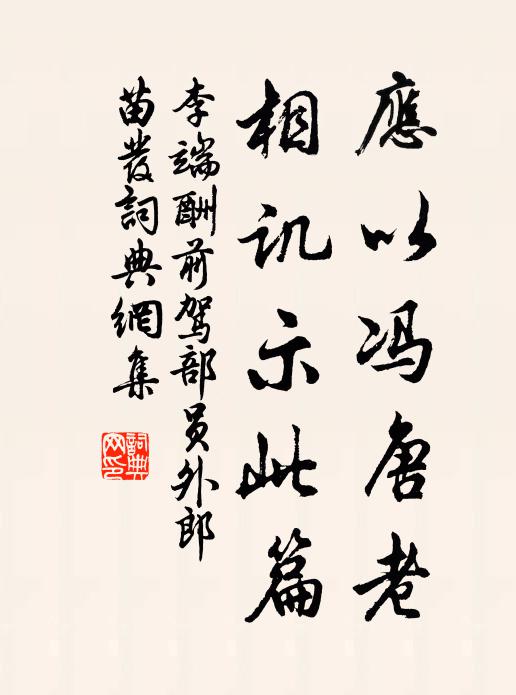 應以冯唐老
相讥示此篇
李端酬前驾部員外郎
苗發詞典網集
詞典
网印